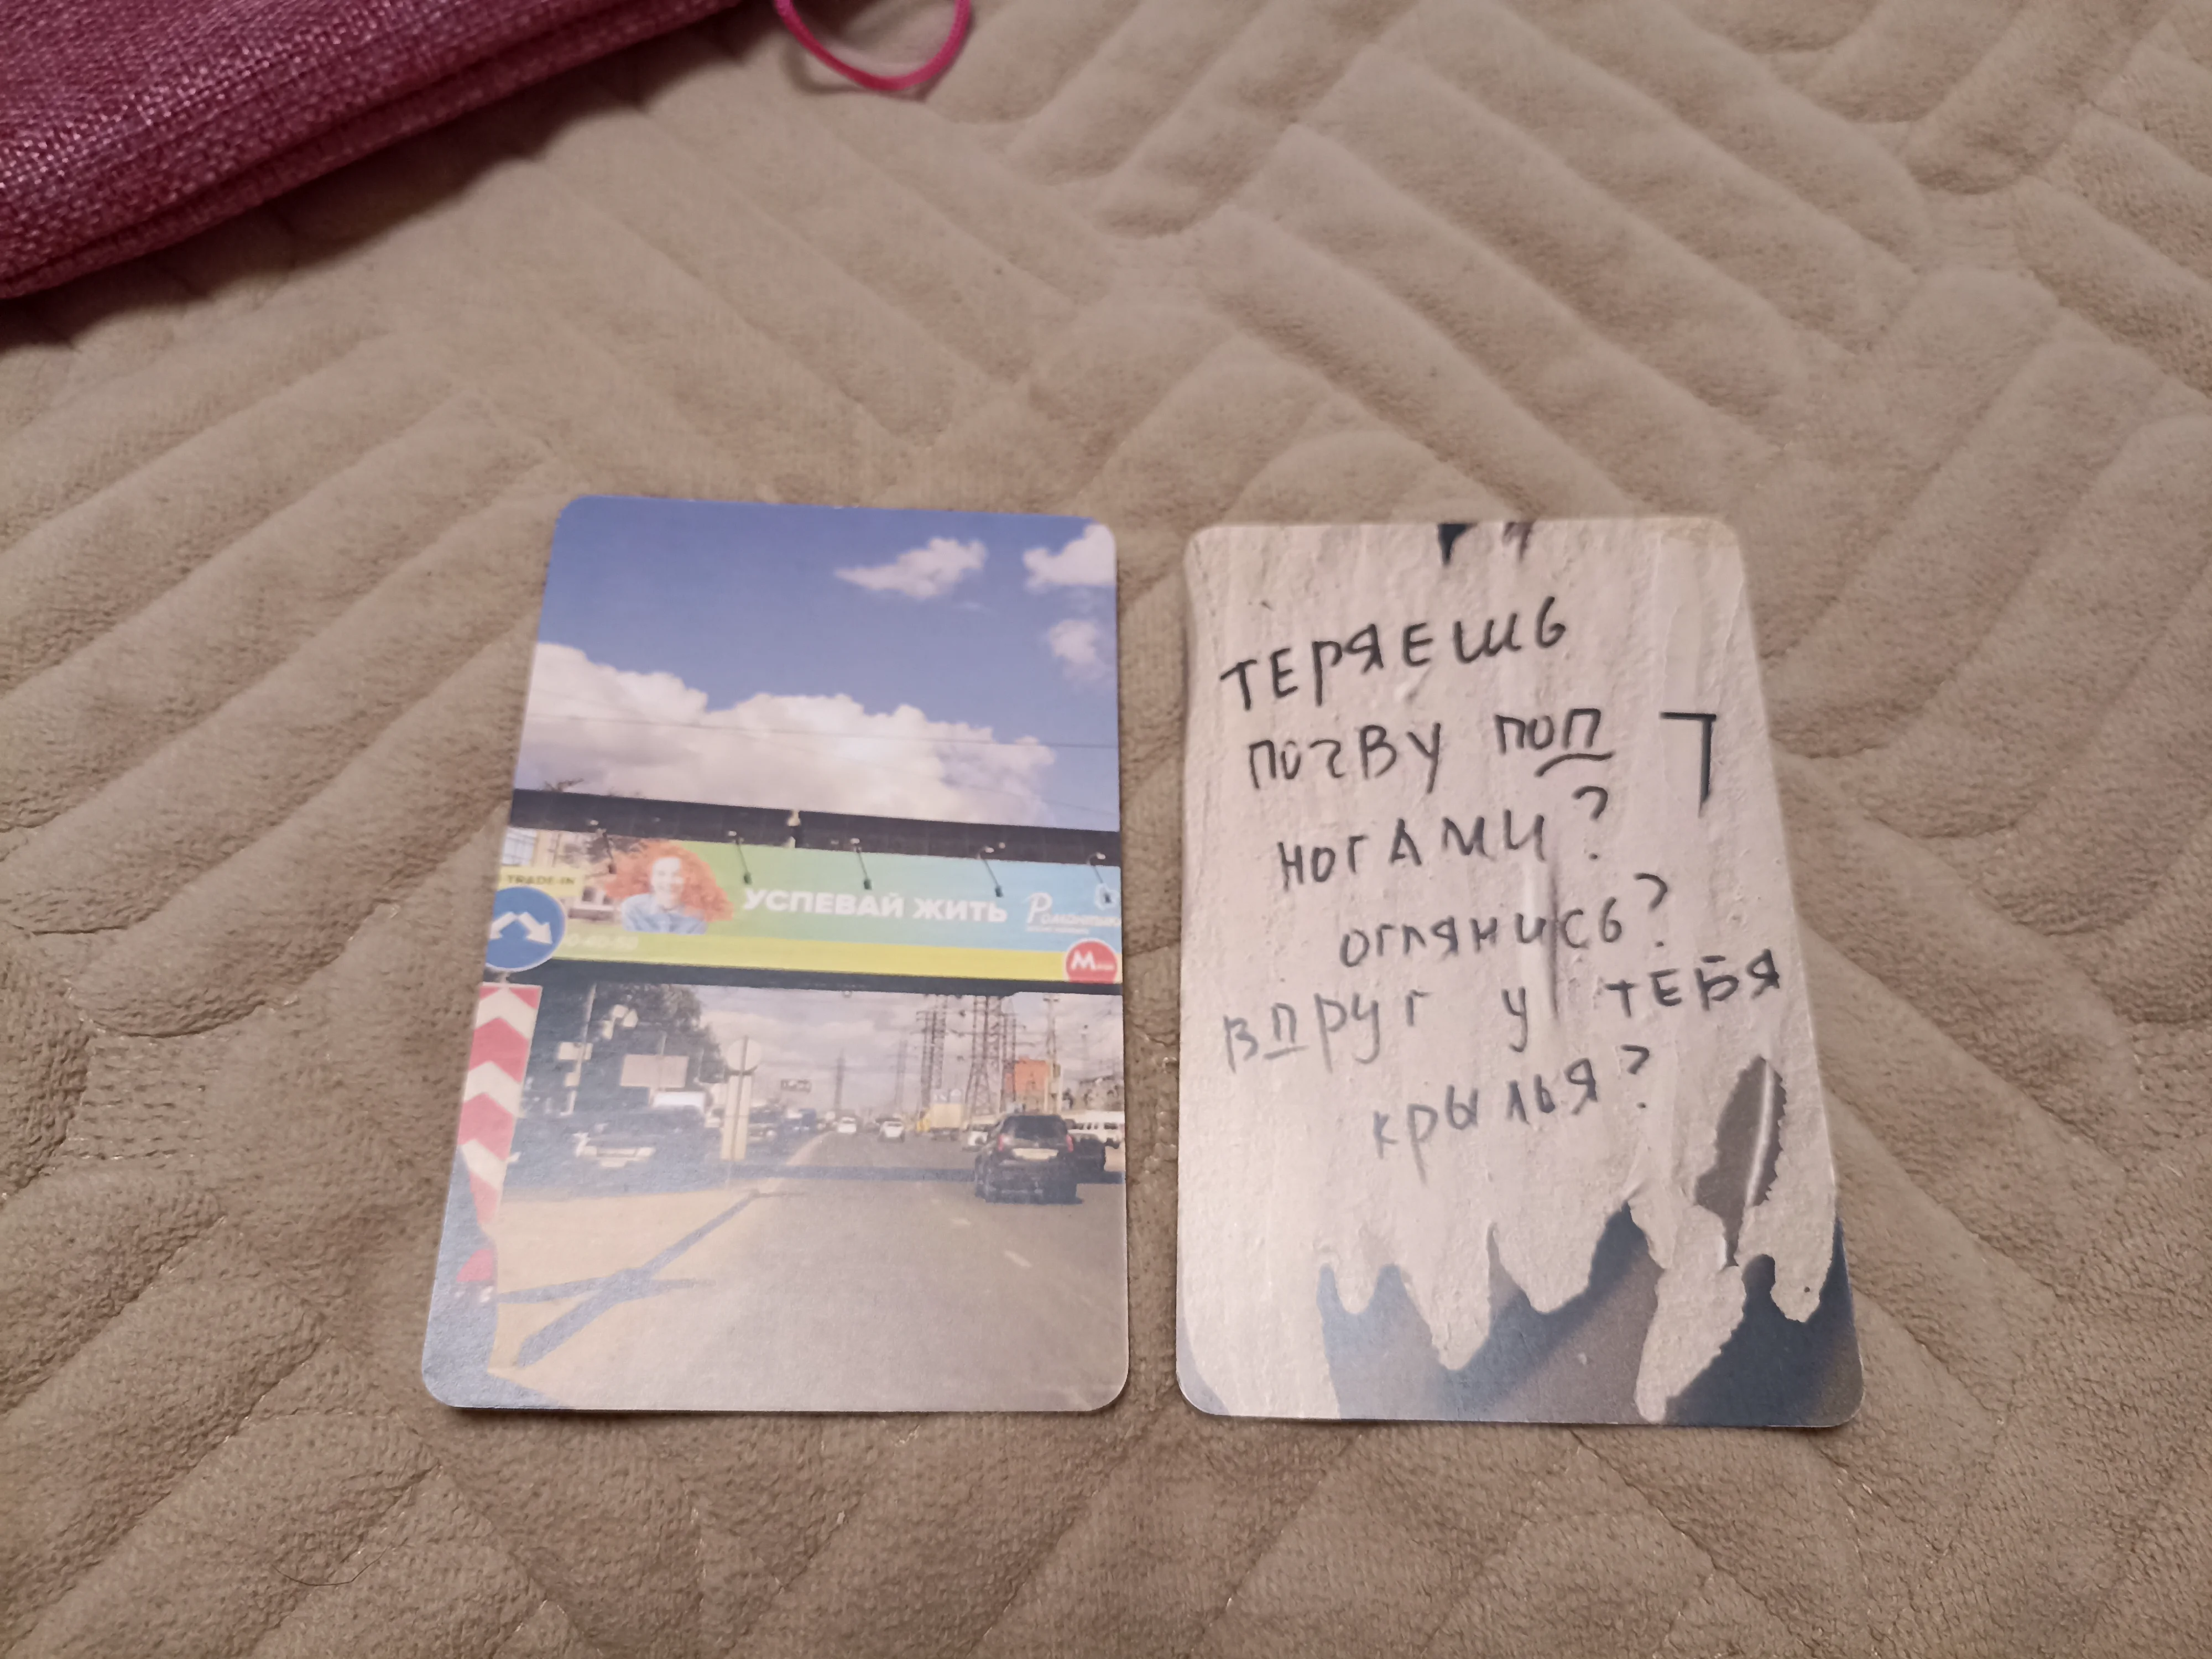 TRADE-IN
УСПЕВАЙ ЖИТЬ
М
ТЕРЯЕШЬ
ПОЧВУ ПОП
НОГАМИ?
ОГЛЯНИСЬ?
ВПРУГ У ТЕБЯ
КРЫЛЬЯ?